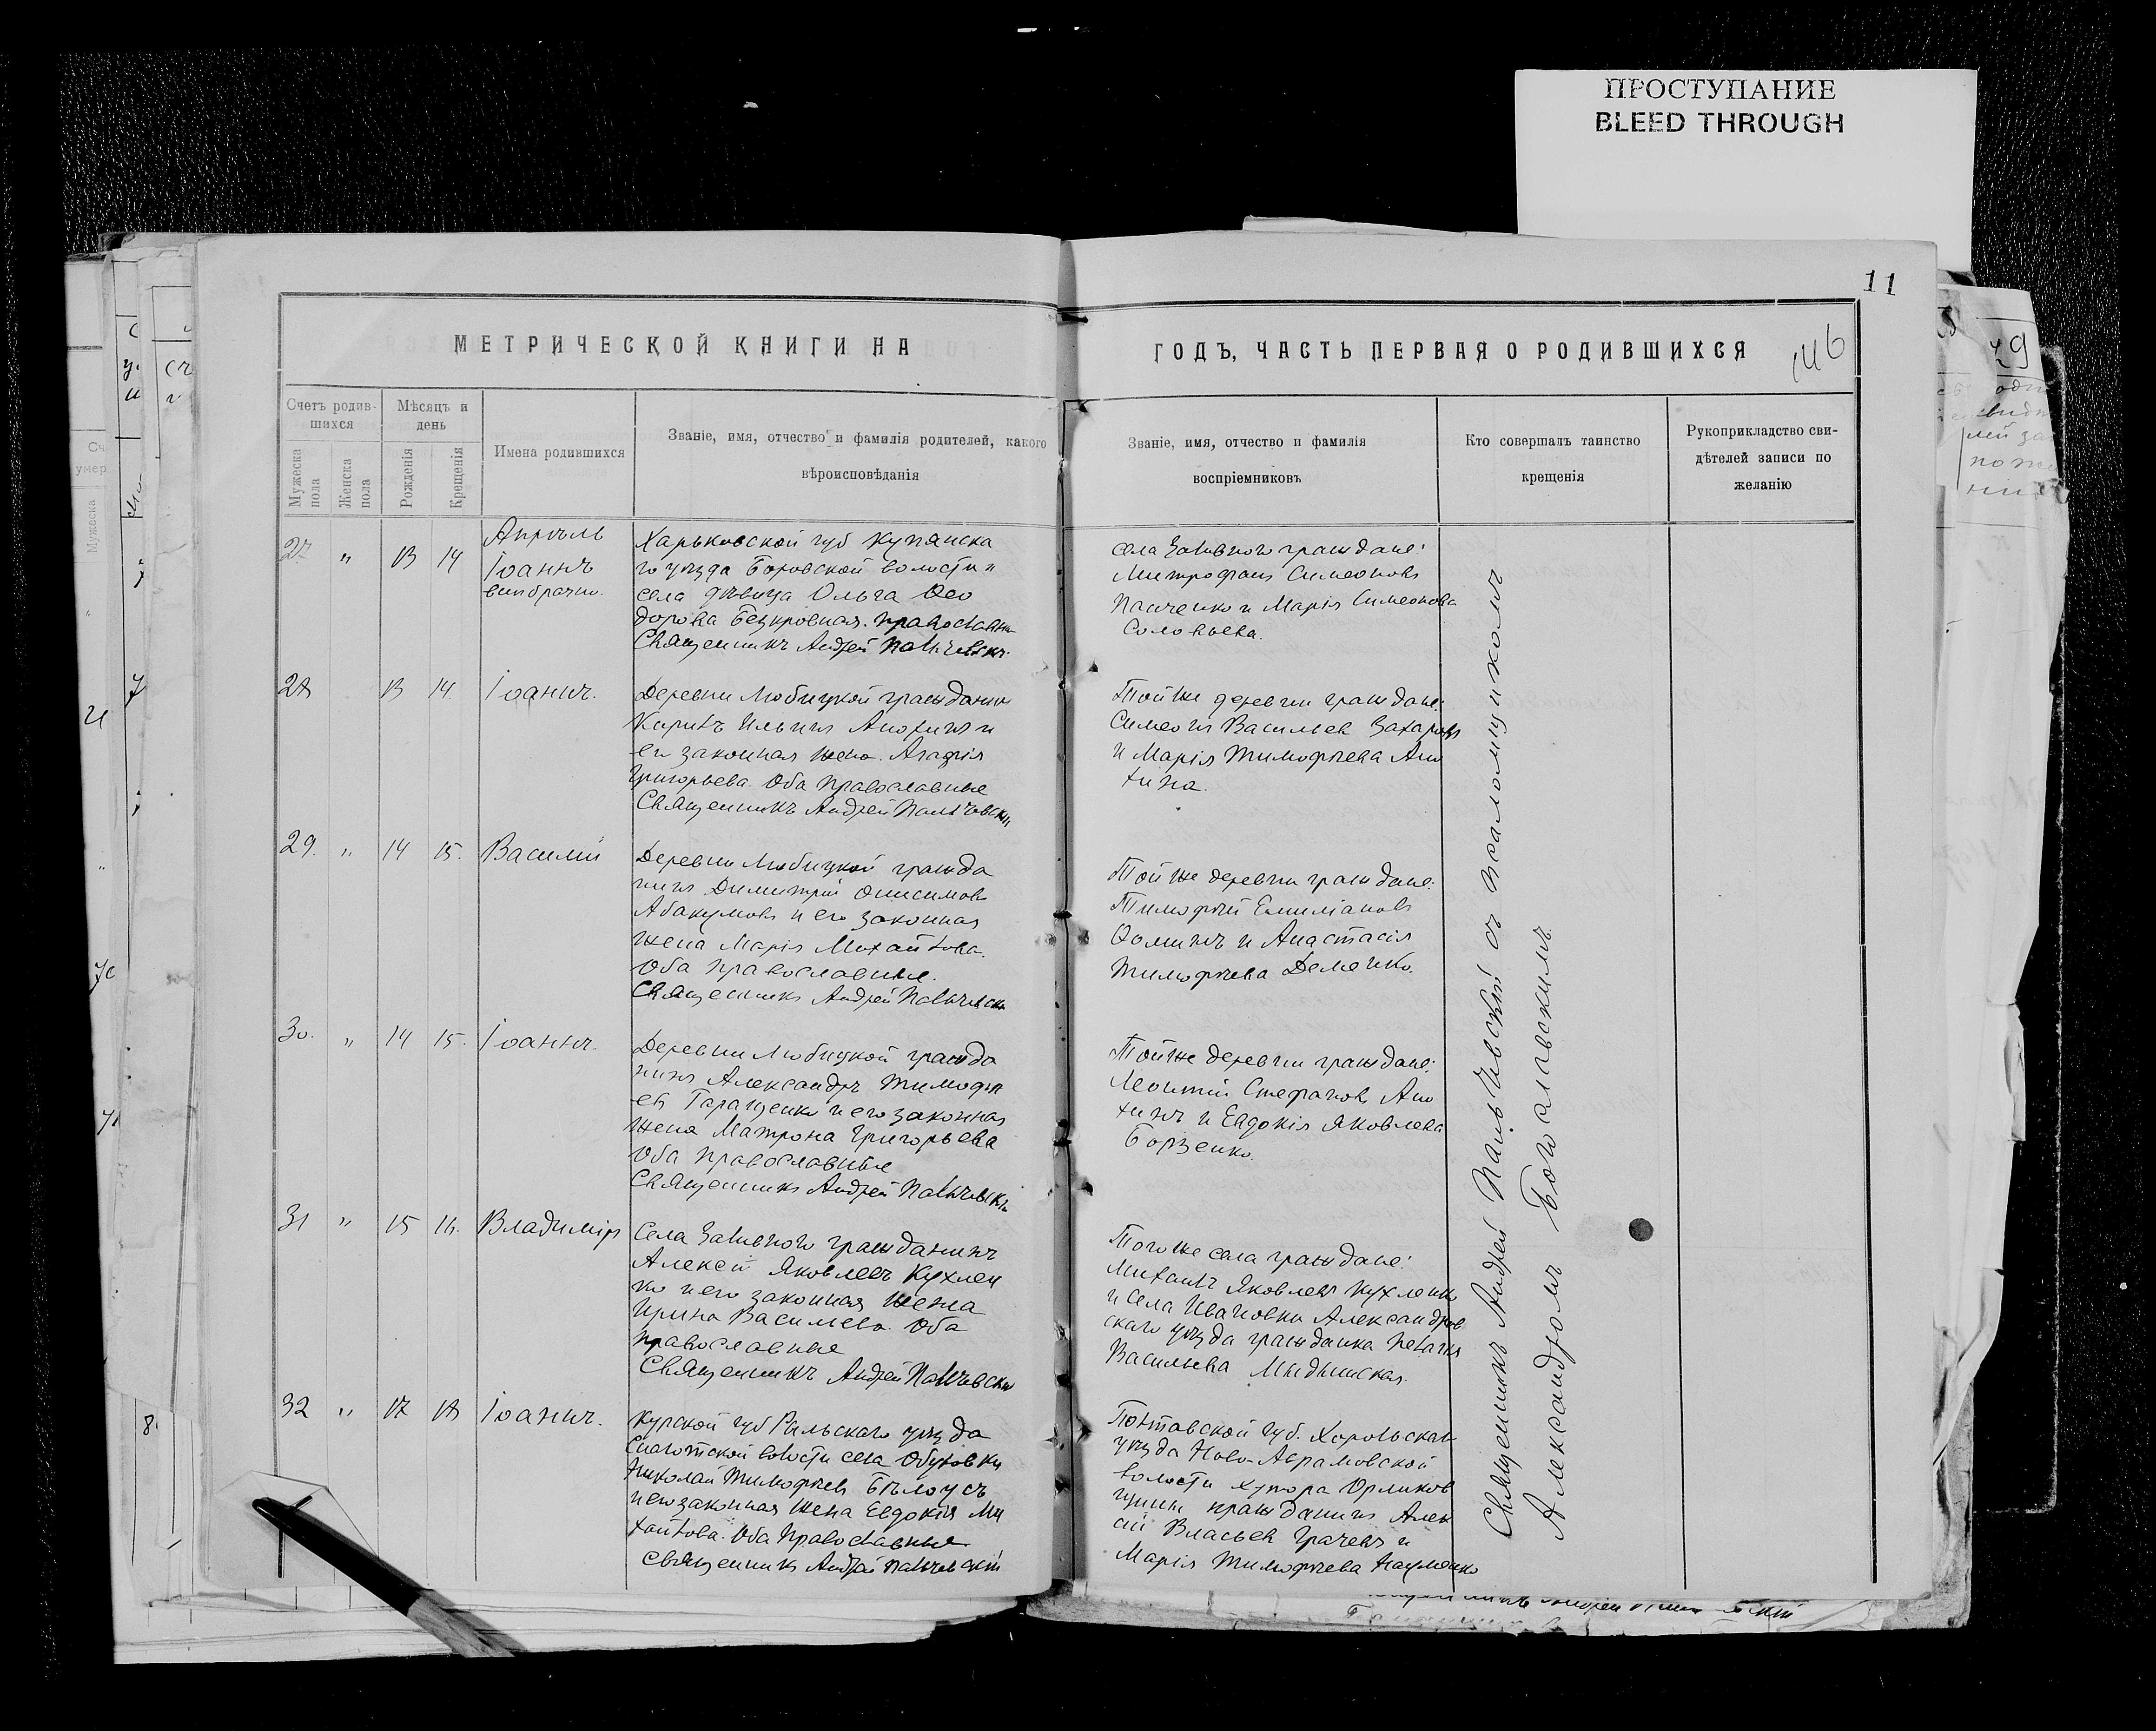 ПРОСТУПАНИЕ
BLEED THROUGH
11
146
МЕТРИЧЕСКОЙ КНИГИ НА
ГОДЪ, ЧАСТЬ ПЕРВАЯ О РОДИВШИХСЯ
Счетъ родив-
шихся
Мужеска
пола
Женска
пола
Мѣсяцъ и
день
Рожденія
Крещенія
Имена родившихся
Званіе, имя, отчество и фамилія родителей, какого
вѣроисповѣданія
Званіе, имя, отчество и фамилія
воспріемниковъ
Кто совершалъ таинство
крещенія
Рукоприкладство сви-
дѣтелей записи по
желанію
Апрѣль
27 " 13 14
Іоаннъ
внѣбрачн.
Харьковской губ Купянска
го уѣзда Боровской волости и
села дѣвица Ольга Ѳео
дорова Безкровная. Православн
Священникъ Андрей
села Заливного граждане:
Митрофанъ Симеоновъ
Панченко и Марія Симеонова
Соловьева.
28 13 14. Іоаннъ.
Деревни Любицкой гражданин
Кирилъ Ильинъ Анохинъ и
его законная жена Агафія
Григорьева. Оба Православные
Священникъ Андрей
Той же деревни граждане:
Симеонъ Васильев Захаровъ
и Марія Тимофѣева Ано
хина.
29. " 14 15. Василій
Деревни Любицкой гражда
нинъ Димитрій Онисимовъ
Абакумовъ и его законная
жена Марія Михайлова.
Оба православные.
Священникъ Андрей
Той же деревни граждане:
Тимофѣй Емиліановъ
Ѳоминъ и Анастасія
Тимофѣева Деменко.
30. " 14 15. Іоаннъ.
Деревни Любицкой гражда
нинъ Александръ Тимофѣ
евъ Таращенко и его законная
жена Матрона Григорьева
Оба православные
Священникъ Андрей
Той же деревни граждане:
Леонтій Стефановъ Ано
хинъ и Евдокія Яковлева
Борзенко.
31 " 15 16. Владиміръ
Села Заливного гражданинъ
Алексѣй Яковлевъ Кухлен
ко и его законная жена
Ирина Василева. Оба
православные
Священникъ Андрей
Того же села граждане:
Михаилъ Яковлевъ Кухленко
и села Ивановки Александров
скаго уѣзда гражданка Пелагія
Васильева
32 " 17 18 Іоаннъ.
Курской губ Рыльскаго уѣзда
Снаготской волости села Обуховки
Николай Тимофѣевъ Бѣлоусъ
и его законная жена Евдокія Ми
хайлова. Оба Православные
Священникъ Андрей
Полтавской губ. Хорольскаго
уѣзда Ново-Аврамовской
волости хутора Орликов
щины гражданинъ Алек
сій Власьев Грачевъ и
Марія Тимофѣева Науменко
Священникъ Андрей Пальчевскій съ псаломщикомъ
Александромъ Богославскимъ